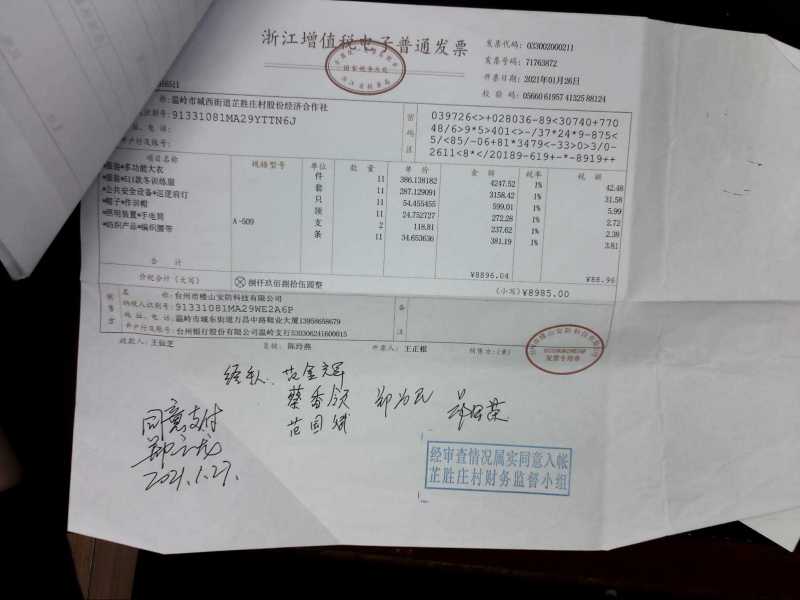 浙江增值税电子普通发票
发票代码：033002000211
发票号码：71763872
开票日期：2021年01月26日
校 验 码：05660 61957 41325 88124
称：温岭市城西街道芷胜庄村股份经济合作社
91331081MA29YTTN6J
地址、电话：
开户行及账号：
密码区
039726<>+028036-89<30740+770
48/6>9*5>401<>-/37*24*9-875<
5/<85/-06+81*3479<-33>0>3/0-
2611<8*</20189-619+-*-8919++
项目名称 规格型号 单位 数量 单价 金额 税率 税额
*服装*多功能大衣 件 11 386.138182 4247.52 1% 42.48
*服装*511款冬训练服 套 11 287.129091 3158.42 1% 31.58
*公共安全设备*巡逻肩灯 只 11 54.455455 599.01 1% 5.99
*帽子*作训帽 顶 11 24.752727 272.28 1% 2.72
*照明装置*手电筒 A-509 支 2 118.81 237.62 1% 2.38
*纺织产品*编织腰带 条 11 34.653636 381.19 1% 3.81
合计 ¥8896.04 ¥88.96
价税合计（大写） ⊗捌仟玖佰捌拾伍圆整 （小写）¥8985.00
销售方
名 称：台州市楼山安防科技有限公司
纳税人识别号：91331081MA29WE2A6P
地 址、电 话：温岭市城东街道万昌中路鞋业大厦13958658679
开户行及账号：台州银行股份有限公司温岭支行530306241600015
备注
收款人：王仙芝 复核：陈玲燕 开票人：王正根 销售方：(章)
发票专用章
经手人：
蔡香领 郑为民
范国斌
同意支付
2021.1.27.
经审查情况属实同意入帐
芷胜庄村财务监督小组